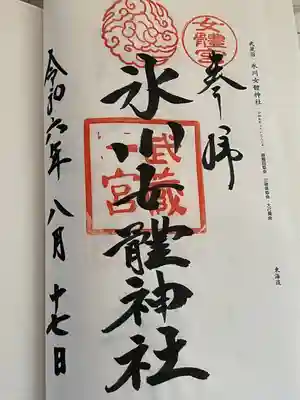 奉拝
武蔵国 氷川女體神社
女體宮
武蔵一宮
氷川女體神社
令和六年 八月 十七日